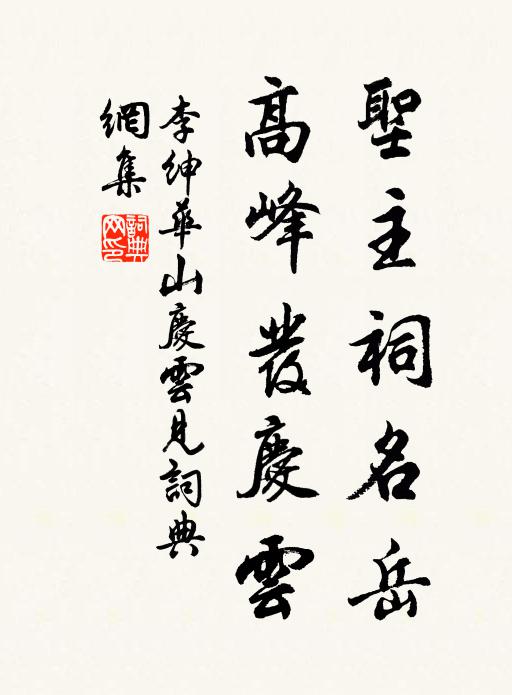 聖主祠名岳
高峰發慶雲
李紳華山慶雲見詞典
網集
詞典網印